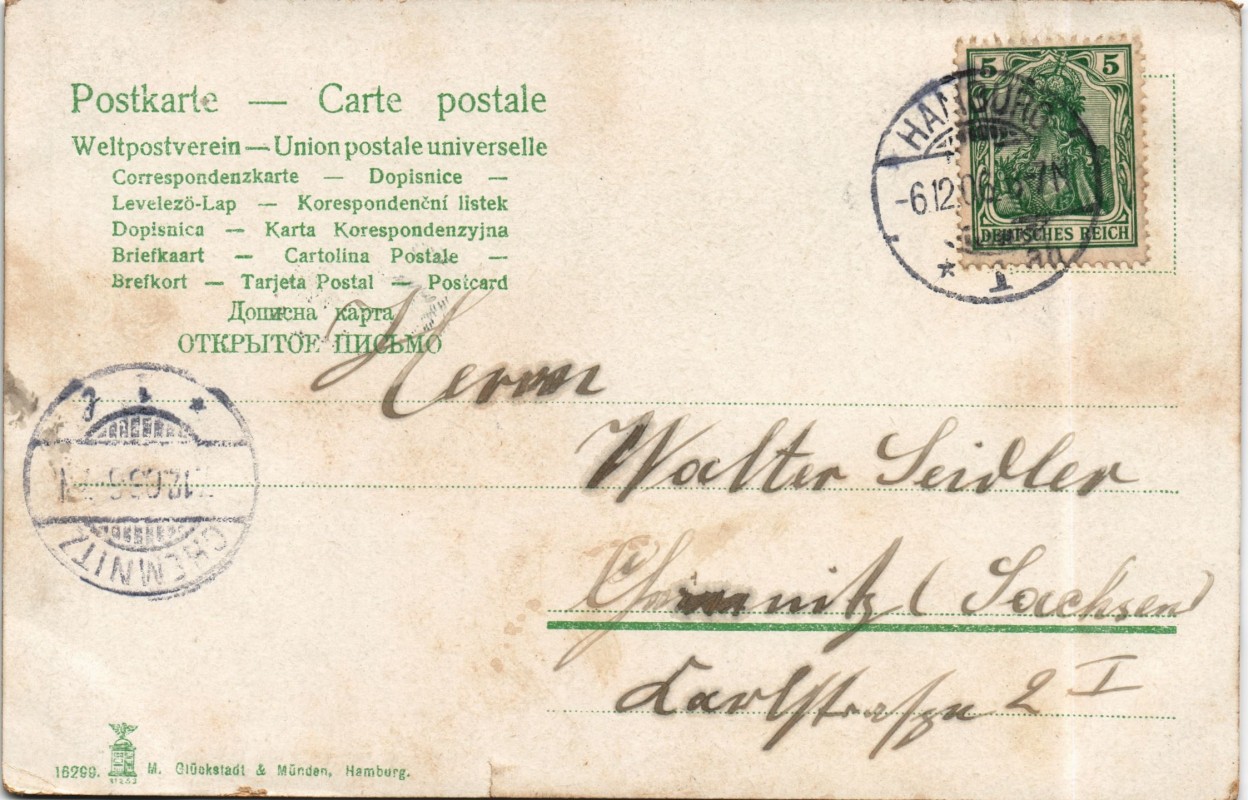 Postkarte — Carte postale
Weltpostverein — Union postale universelle
Correspondenzkarte — Dopisnice —
Levelezö-Lap — Korespondenční listek
Dopisnica — Karta Korespondenzyjna
Briefkaart — Cartolina Postale —
Brefkort — Tarjeta Postal — Postcard
Дописна карта
ОТКРЫТОЕ ПИСЬМО
5 5
DEUTSCHES REICH
HAMBURG
-6.12.06
* 1
CHEMNITZ
Herrn
Walter Seidler
Chemnitz (Sachsen)
Karlstraße 2 I
16299. M. Glückstadt & Münden, Hamburg.